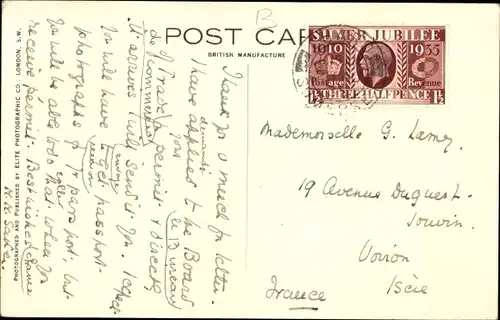 POST CARD
BRITISH MANUFACTURE
B
SILVER JUBILEE
1910 1935
Postage Revenue
1½ THREE HALFPENCE 1½
Thank you much for letter.
demande
I have applied to the Board
de Commerce
of Trade permit & directly
it arrives I will send it you. I expect
you will have to get passport
photographs for passport, but
you will be able to do that when you
receive permit. Best wishes
Mademoiselle G. Lamez
19 Avenue Duquest.
Jouvin
Voiron
Isère
France
PHOTOGRAPHED AND PUBLISHED BY ELITE PHOTOGRAPHIC CO. LONDON, S.W.